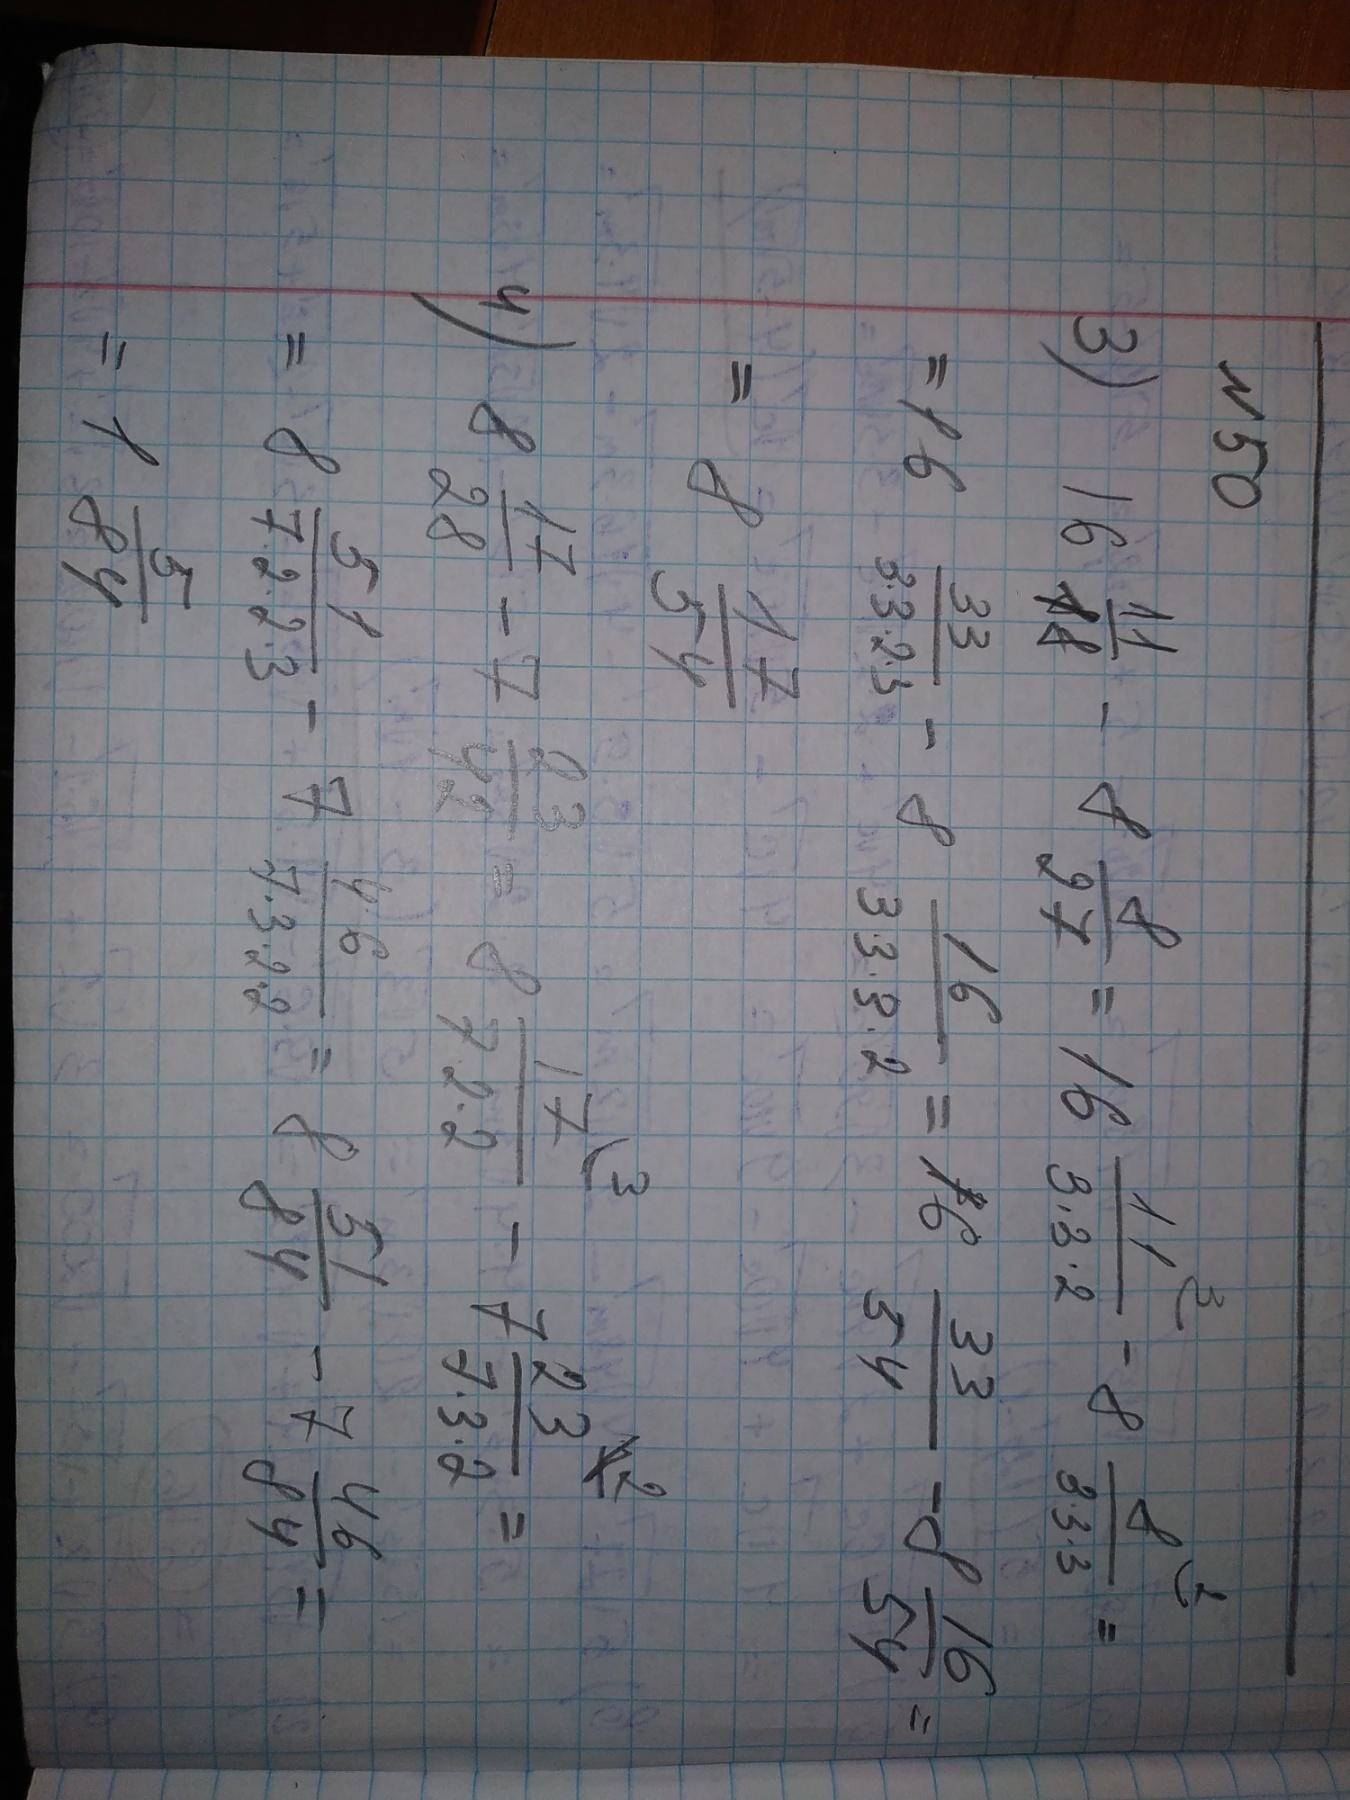 №50
3) 16 11/18 - 8 8/27 = 16 11/3·3·2 ⁽³ - 8 8/3·3·3 ⁽² =
= 16 33/3·3·2·3 - 8 16/3·3·3·2 = 16 33/54 - 8 16/54 =
= 8 17/54
4) 8 17/28 - 7 23/42 = 8 17/7·2·2 ⁽³ - 7 23/7·3·2 ⁽² =
= 8 51/7·2·2·3 - 7 46/7·3·2·2 = 8 51/84 - 7 46/84 =
= 1 5/84